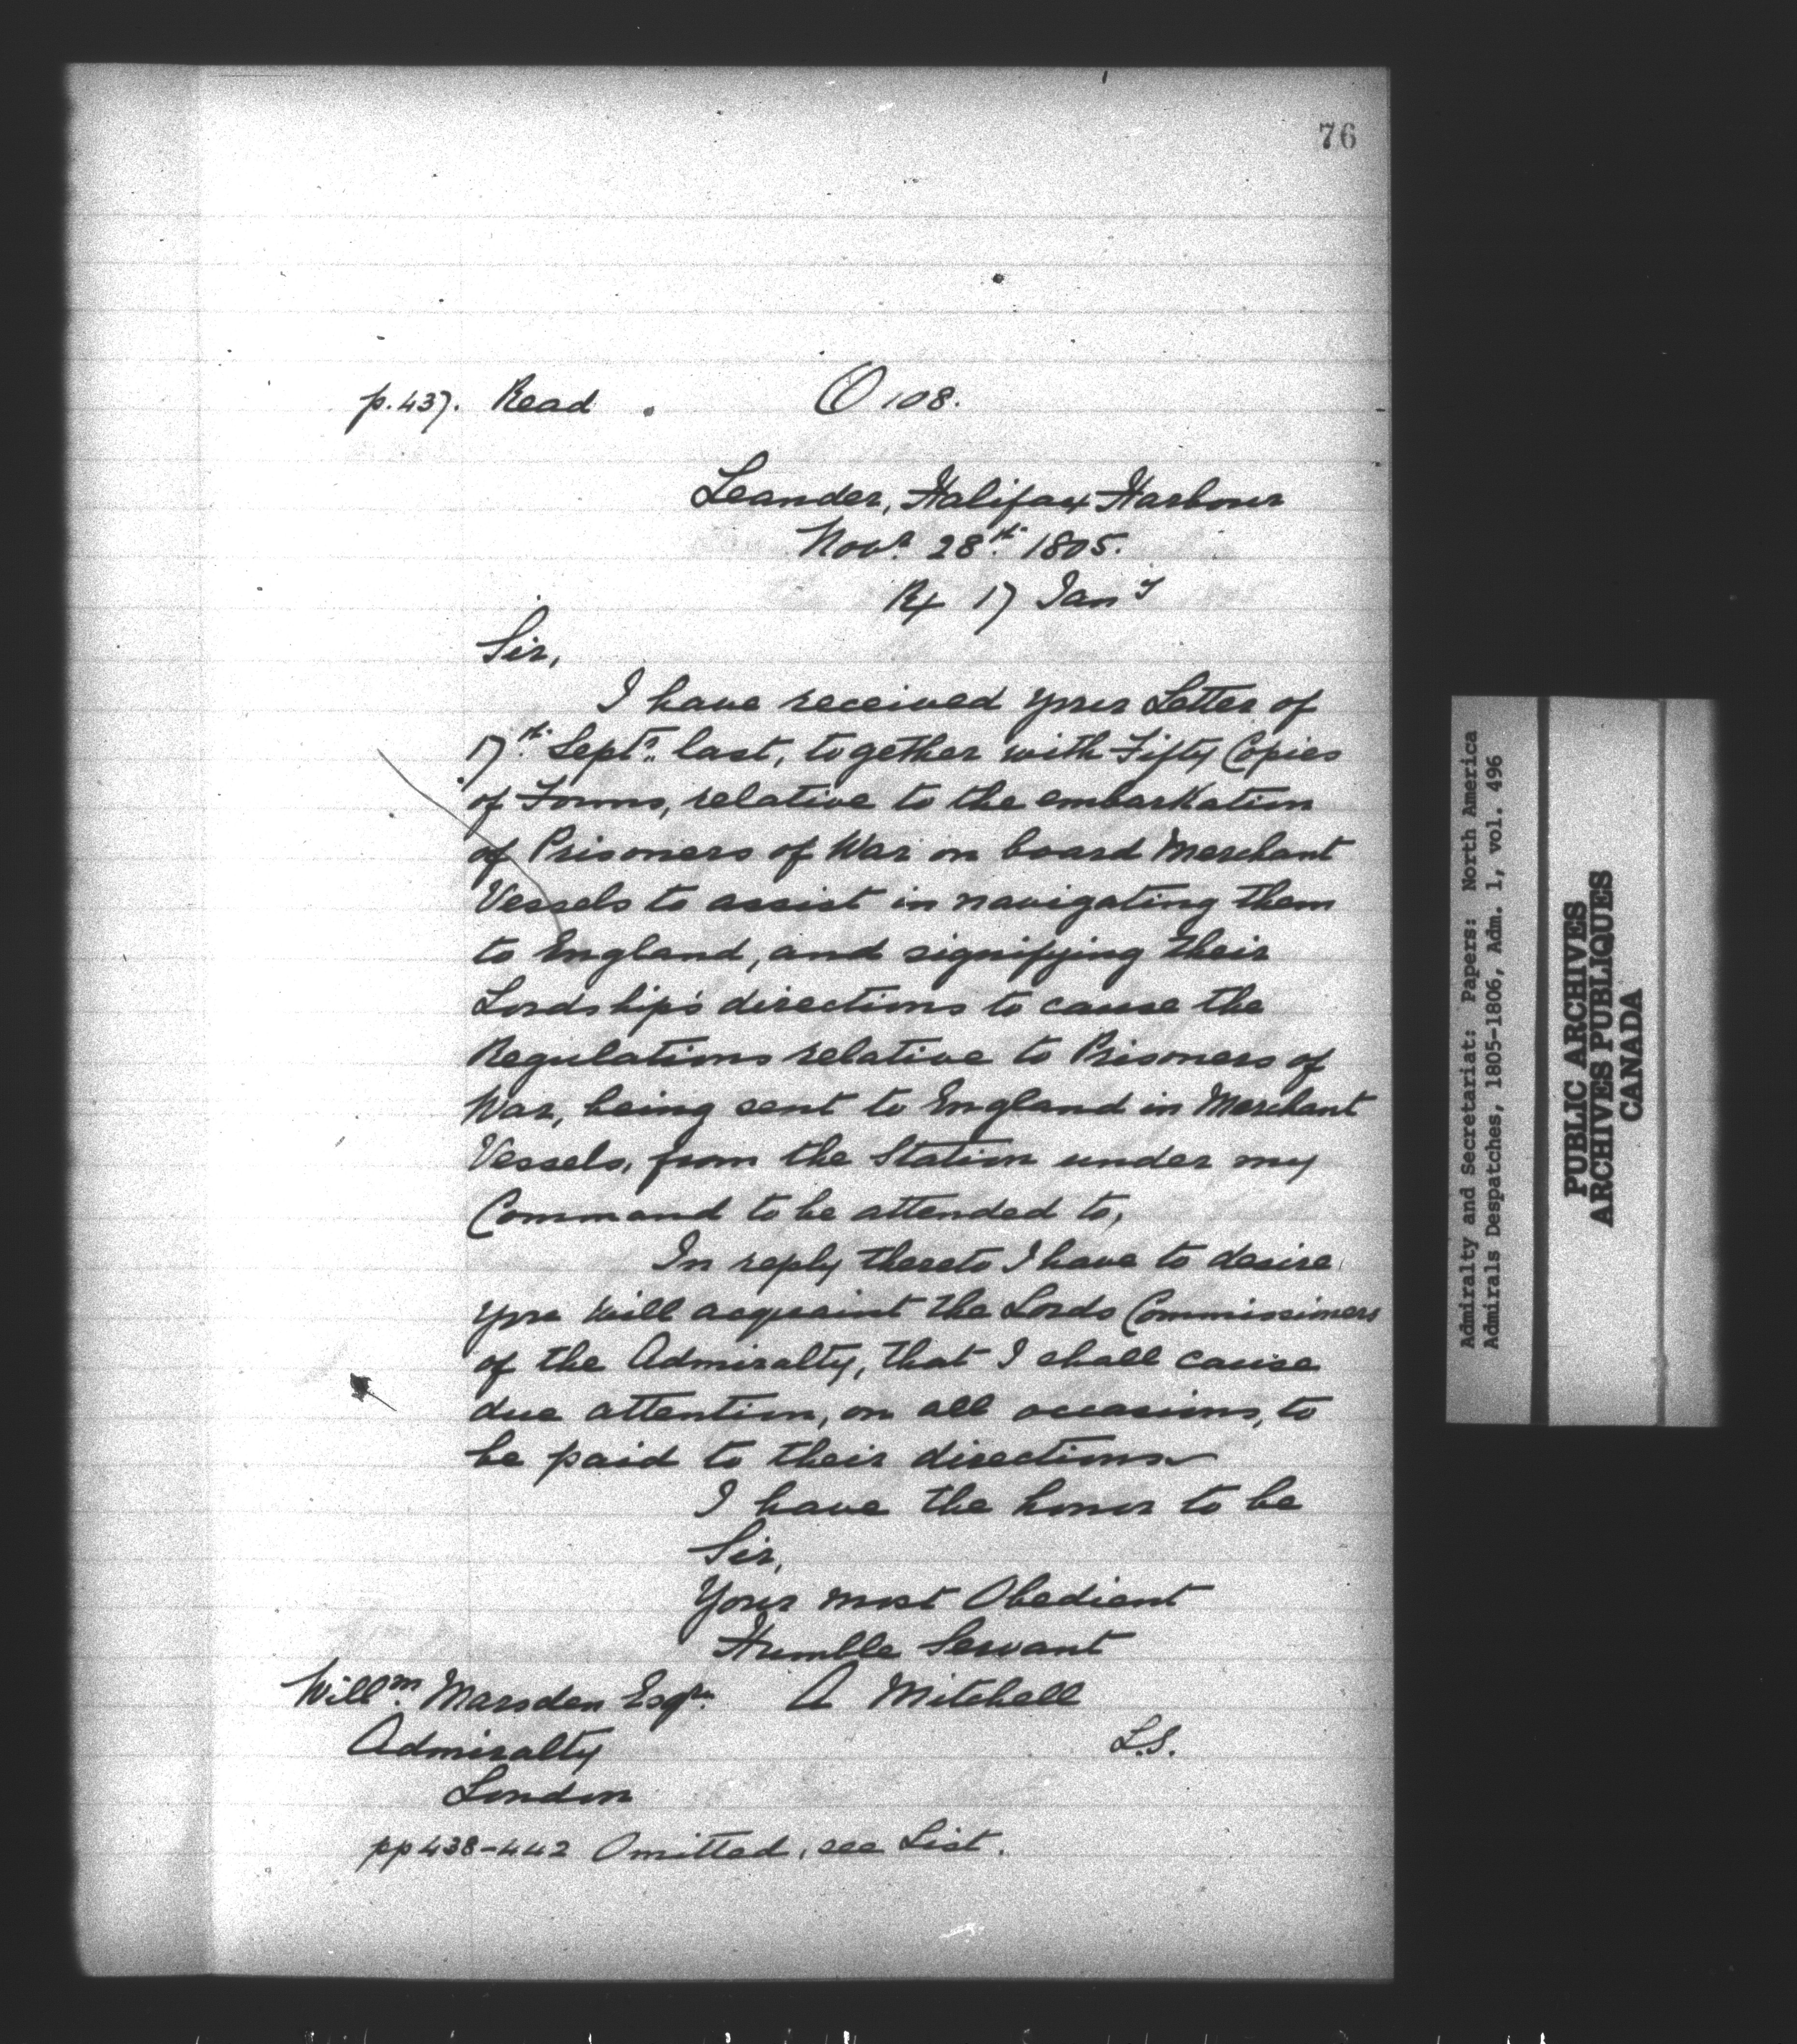 76
p.437. Read . O 108.
Leander, Halifax Harbour
Novr. 28th. 1805.
Rx 17 Jany
Sir,
I have received your Letter of
17th. Septr. last, together with Fifty Copies
of Forms, relative to the embarkation
of Prisoners of War on board Merchant
Vessels to assist in navigating them
to England, and signifying their
Lordship's directions to cause the
Regulations relative to Prisoners of
War, being sent to England in Merchant
Vessels, from the Station under my
Command to be attended to,
In reply thereto I have to desire
you will acquaint the Lords Commissioners
of the Admiralty, that I shall cause
due attention, on all occasions, to
be paid to their directions
I have the honor to be
Sir,
Your most Obedient
Humble Servant
Willm. Marsden Esqre. A Mitchell
Admiralty L.S.
London
pp 438-442 Omitted, see List.
Admiralty and Secretariat: Papers: North America
Admirals Despatches, 1805-1806, Adm. 1, vol. 496
PUBLIC ARCHIVES
ARCHIVES PUBLIQUES
CANADA